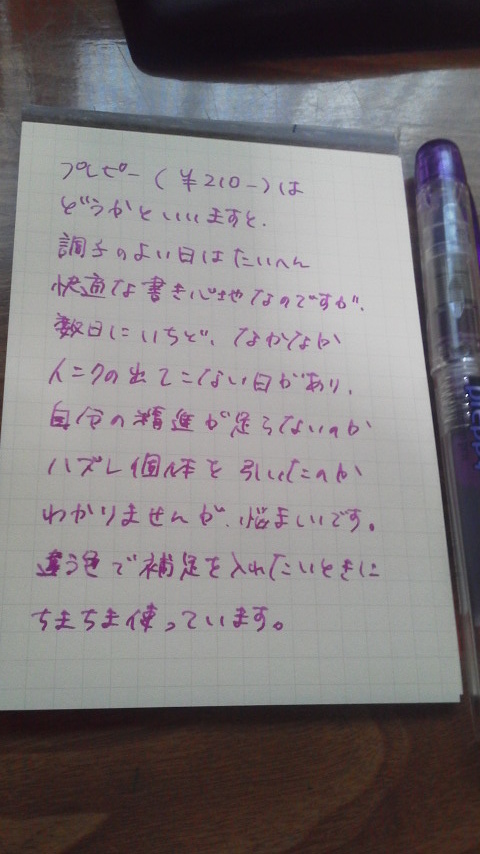 プレピー(¥210-)は
どうかといいますと、
調子のよい日はたいへん
快適な書き心地なのですが、
数日にいちど、なかなか
インクの出てこない日があり、
自分の精進が足らないのか
ハズレ個体を引いたのか
わかりませんが、悩ましいです。
違う色で補足を入れたいときに
ちまちま使っています。